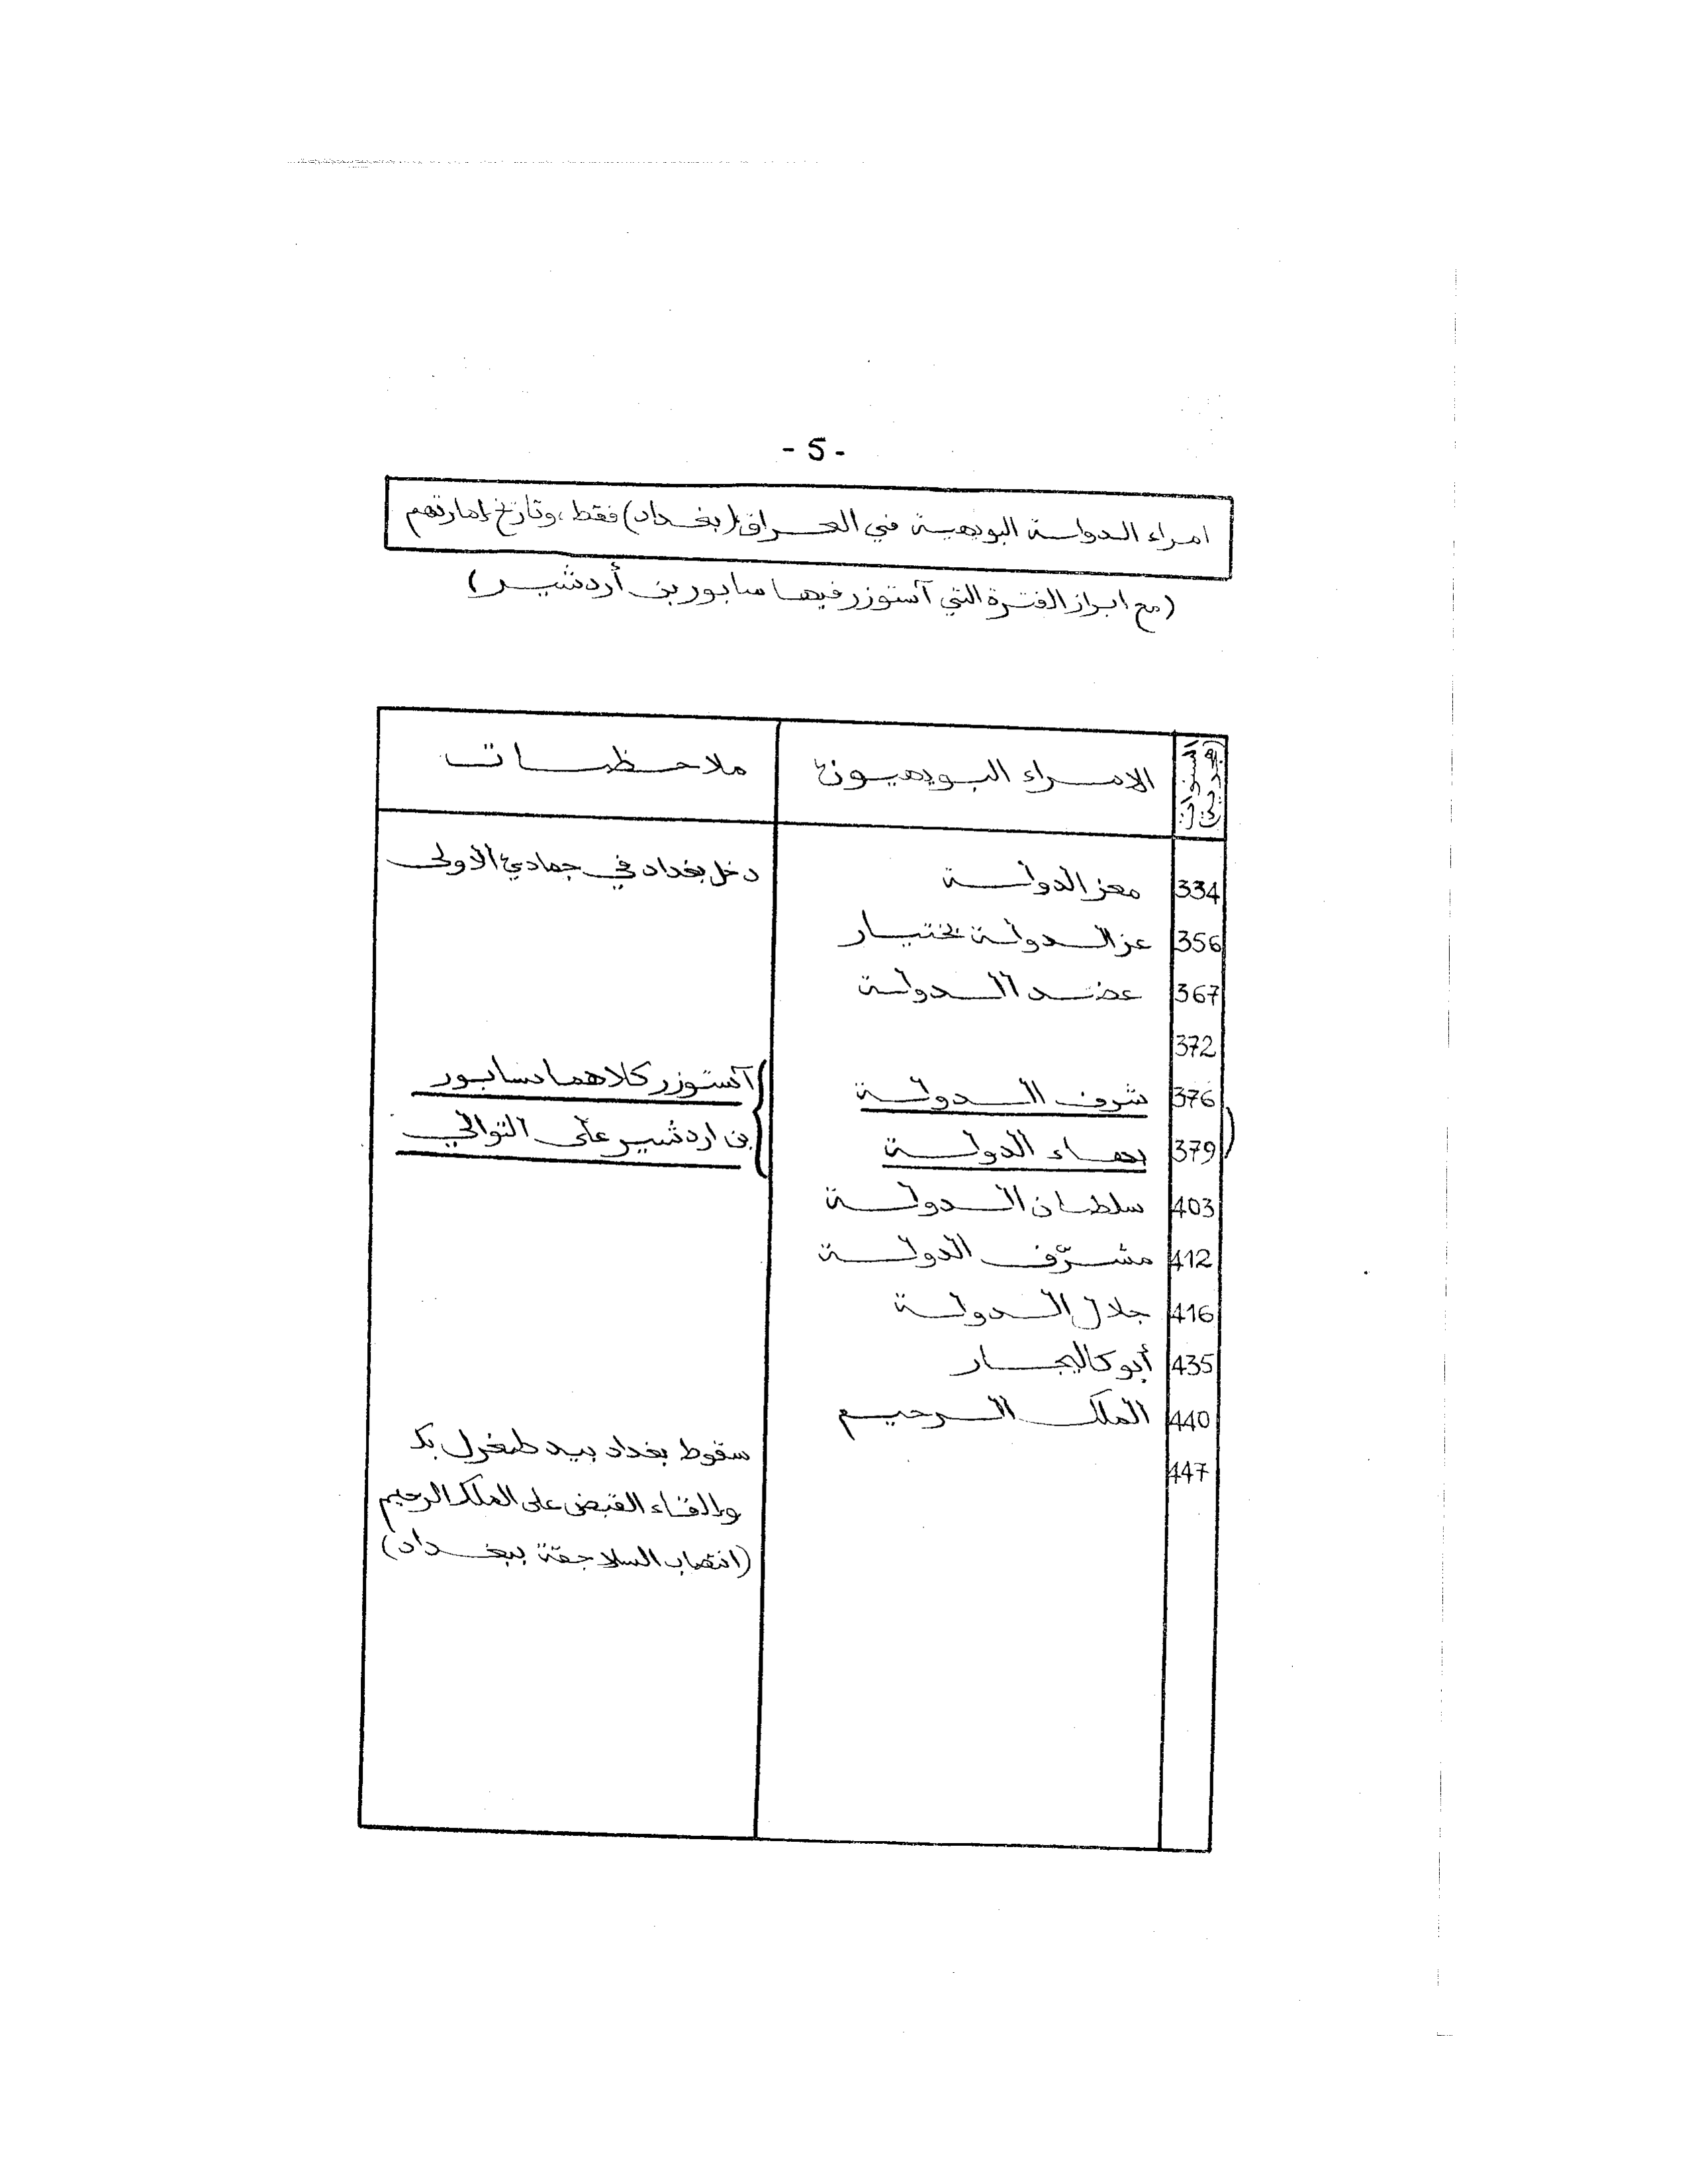 - 5 -
امراء الدولة البويهية في العراق (بغداد) فقط، وتاريخ إمارتهم
(مع ابراز الفترة التي آستوزر فيها سابور بن أردشير)
الامراء البويهيون ملاحظات
334 معز الدولة دخل بغداد في جمادي الاولى
356 عز الدولة بختيار
367 عضد الدولة
372
376 شرف الدولة آستوزر كلاهما سابور
379 بهاء الدولة بن اردشير على التوالي
403 سلطان الدولة
412 مشرّف الدولة
416 جلال الدولة
435 أبو كاليجار
440 الملك الرحيم
447 سقوط بغداد بيد طغرل بك
وإلقاء القبض على الملك الرحيم
(انتصاب السلاجقة ببغداد)